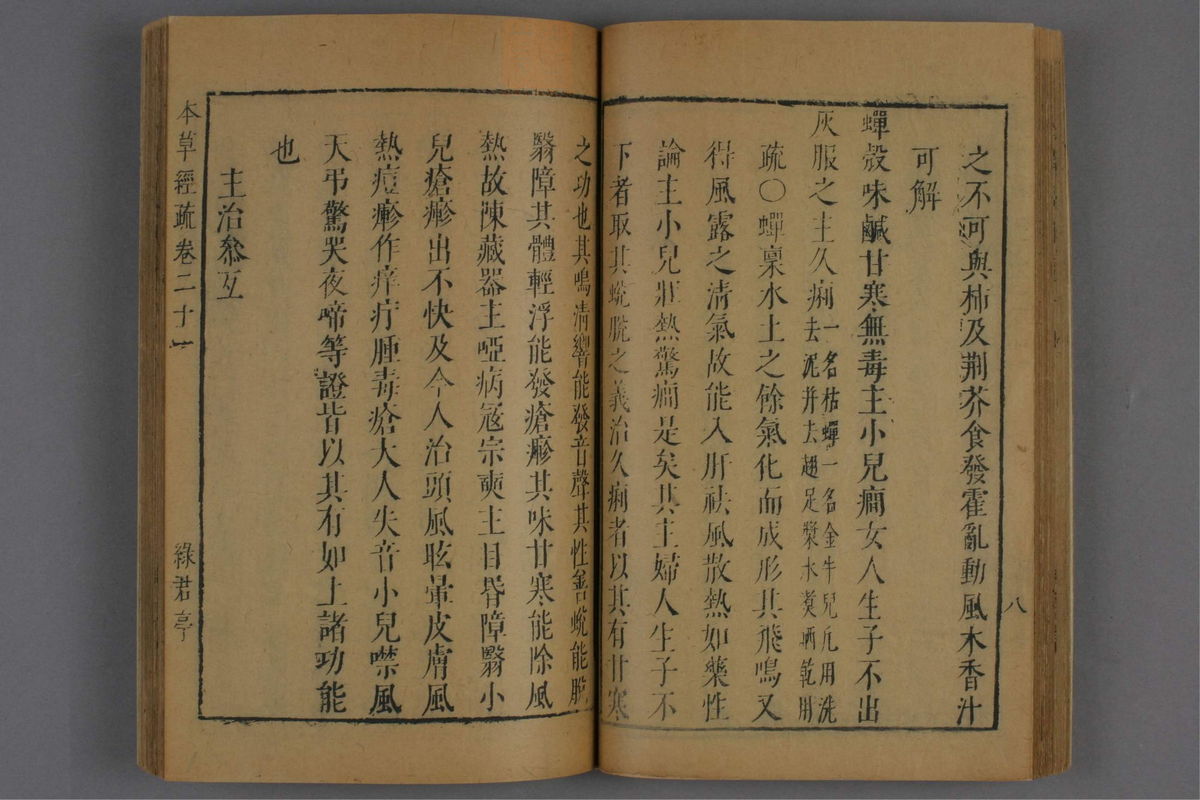 之不可與柿及荆芥食發霍亂動風木香汁
可解
蟬殼味鹹甘寒無毒主小兒癎女人生子不出
灰服之主久痢
一名枯蟬一名金牛兒凡用洗
去泥并去翅足漿水煑晒乾用
疏〇蟬稟水土之餘氣化而成形其飛鳴又
得風露之清氣故能入肝祛風散熱如藥性
論主小兒壯熱驚癎是矣其主婦人生子不
下者取其蛻脫之義治久痢者以其有甘寒
八
之功也其鳴清響能發音聲其性善蛻能脫
翳障其體輕浮能發瘡瘮其味甘寒能除風
熱故陳藏器主啞病寇宗奭主目昏障翳小
兒瘡瘮出不快及今人治頭風眩暈皮膚風
熱痘瘮作痒疔腫毒瘡大人失音小兒噤風
天弔驚哭夜啼等證皆以其有如上諸功能
也
主治叅互
本草經疏卷二十一
綠君亭